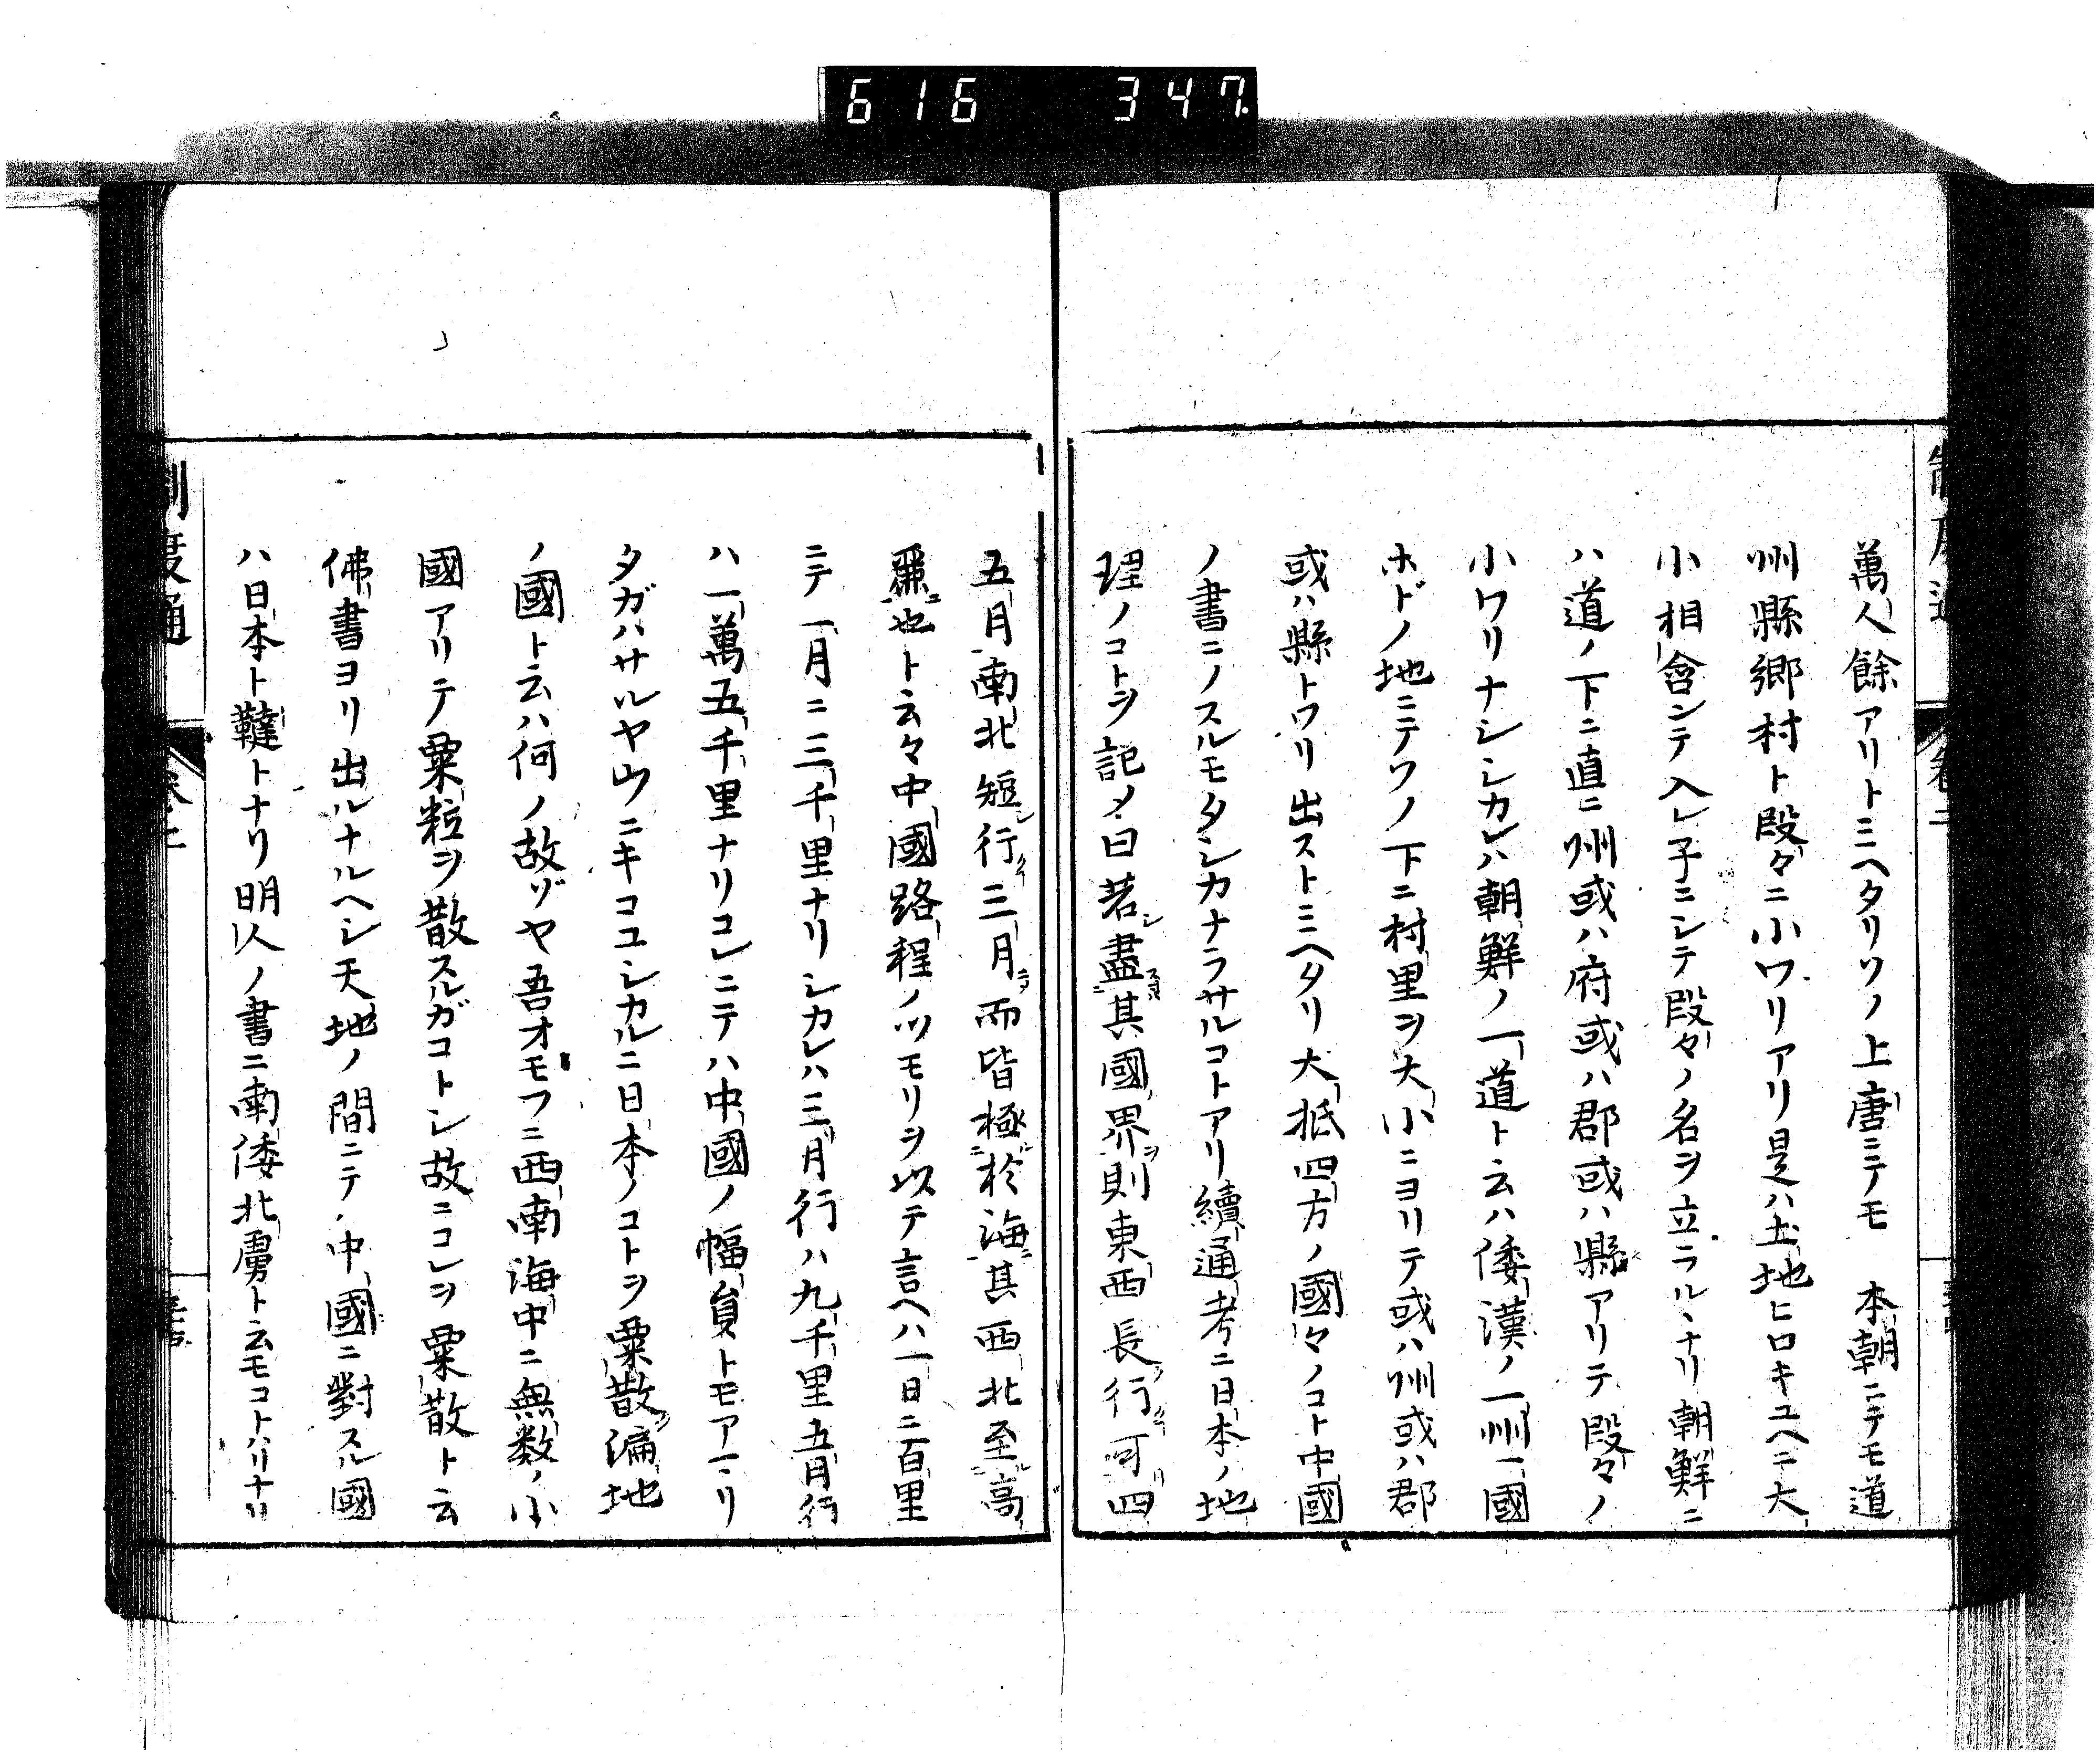 616 347
萬人餘アリトミヘタリソノ上唐ニテモ 本朝ニテモ道
州縣郷村ト段々ニ小ワリアリ是ハ土地ヒロキユヘニ大
小相含ンテ入レ子ニシテ段々ノ名ヲ立ラルヽナリ朝鮮ニ
ハ道ノ下ニ直ニ州或ハ府或ハ郡或ハ縣アリテ段々ノ
小ワリナシシカレハ朝鮮ノ一道ト云ハ倭漢ノ一州一國
ホドノ地ニテソノ下ニ村里ヲ大小ニヨリテ或ハ州或ハ郡
或ハ縣トワリ出ストミヘタリ大抵四方ノ國々ノコト中國
ノ書ニノスルモタシカナラサルコトアリ續通考ニ日本ノ地
理ノコトヲ記メ曰若盡其國界則東西長行可四
五月南北短行三月而皆極於海其西北至高
麗也ト云々中國路程ノツモリヲ以テ言ヘハ一日ニ百里
ニテ一月ニ三千里ナリシカレハ三月行ハ九千里五月行
ハ一萬五千里ナリコレニテハ中國ノ幅員トモアマリ
タガハサルヤウニキコユシカルニ日本ノコトヲ粟散邊地
ノ國ト云ハ何ノ故ゾヤ吾オモフニ西南海中ニ無数ノ小
國アリテ粟粒ヲ散スルガコトシ故ニコレヲ粟散ト云
佛書ヨリ出ルナルヘシ天地ノ間ニテ中國ニ對スル國
ハ日本ト韃トナリ明人ノ書ニ南倭北虜ト云モコトハリナリ
制度通